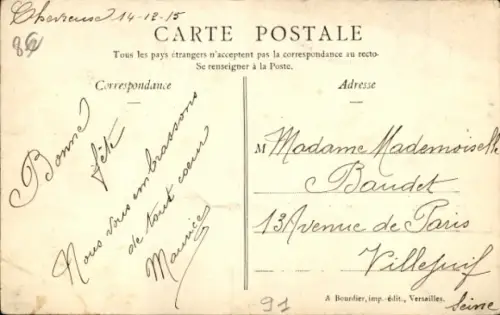 Chevreuse 14-12-15
86
CARTE POSTALE
Tous les pays étrangers n'acceptent pas la correspondance au recto.
Se renseigner à la Poste.
Correspondance
Adresse
Bonne
fête
Nous vous embrassons
de tout coeur
Maurice
M Madame Mademoiselle
Baudet
13 Avenue de Paris
Villejuif
Seine
91
A Bourdier, imp.-édit., Versailles.